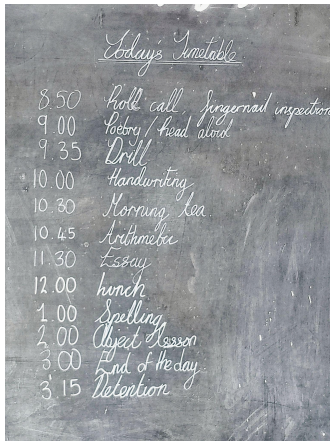 Today's Timetable
8.50 Roll call, fingernail inspection
9.00 Poetry / read aloud
9.35 Drill
10.00 Handwriting
10.30 Morning tea
10.45 Arithmetic
11.30 Essay
12.00 Lunch
1.00 Spelling
2.00 Object Lesson
3.00 End of the day.
3.15 Detention